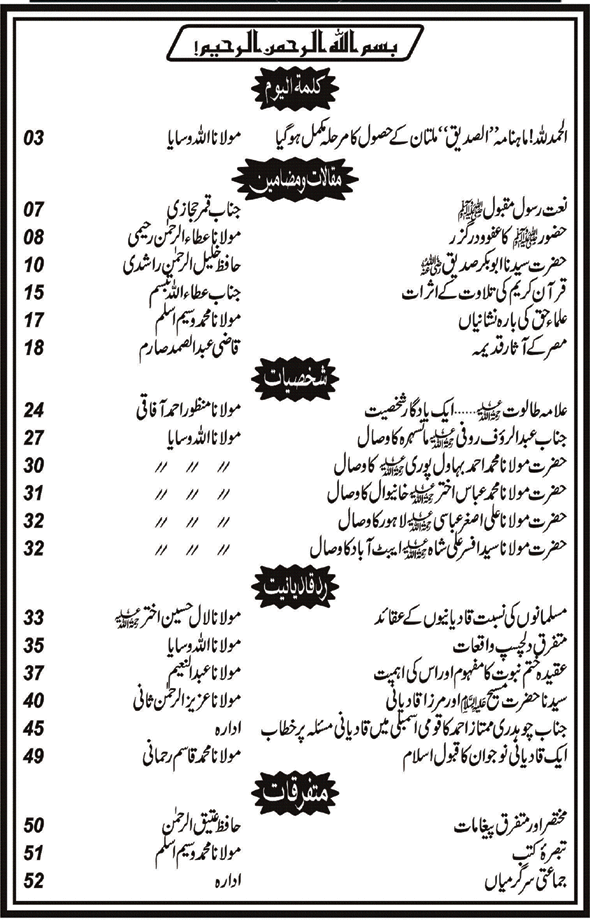 بسم اللہ الرحمن الرحیم!
کلمۃ الیوم
الحمدللہ! ماہنامہ ”الصدیق“ ملتان کے حصول کا مرحلہ مکمل ہو گیا مولانا اللہ وسایا 03
مقالات و مضامین
نعت رسول مقبول ﷺ جناب قمر حجازی 07
حضور ﷺ کا عفو و درگزر مولانا عطاء الرحمٰن رحیمی 08
حضرت سیدنا ابوبکر صدیق رضی اللہ عنہ حافظ خلیل الرحمٰن راشدی 10
قرآن کریم کی تلاوت کے اثرات جناب عطاء اللہ تبسم 15
علماء حق کی بارہ نشانیاں مولانا محمد وسیم اسلم 17
مصر کے آثار قدیمہ قاضی عبدالصمد صارم 18
شخصیات
علامہ طالوت رحمۃ اللہ علیہ ...... ایک یادگار شخصیت مولانا منظور احمد آفاقی 24
جناب عبدالرؤف روفی رحمۃ اللہ علیہ مانسہرہ کا وصال مولانا اللہ وسایا 27
حضرت مولانا محمد احمد بہاول پوری رحمۃ اللہ علیہ کا وصال // // // 30
حضرت مولانا محمد عباس اختر رحمۃ اللہ علیہ خانیوال کا وصال // // // 31
حضرت مولانا علی اصغر عباسی رحمۃ اللہ علیہ لاہور کا وصال // // // 32
حضرت مولانا سید افسر علی شاہ رحمۃ اللہ علیہ ایبٹ آباد کا وصال // // // 32
رد قادیانیت
مسلمانوں کی نسبت قادیانیوں کے عقائد مولانا لال حسین اختر رحمۃ اللہ علیہ 33
متفرق دلچسپ واقعات مولانا اللہ وسایا 35
عقیدہ ختم نبوت کا مفہوم اور اس کی اہمیت مولانا عبدالنعیم 37
سیدنا حضرت مسیح علیہ السلام اور مرزا قادیانی مولانا عزیز الرحمٰن ثانی 40
جناب چوہدری ممتاز احمد کا قومی اسمبلی میں قادیانی مسئلہ پر خطاب ادارہ 45
ایک قادیانی نوجوان کا قبول اسلام مولانا محمد قاسم رحمانی 49
متفرقات
مختصر اور متفرق پیغامات حافظ عتیق الرحمٰن 50
تبصرۂ کتب مولانا محمد وسیم اسلم 51
جماعتی سرگرمیاں ادارہ 52